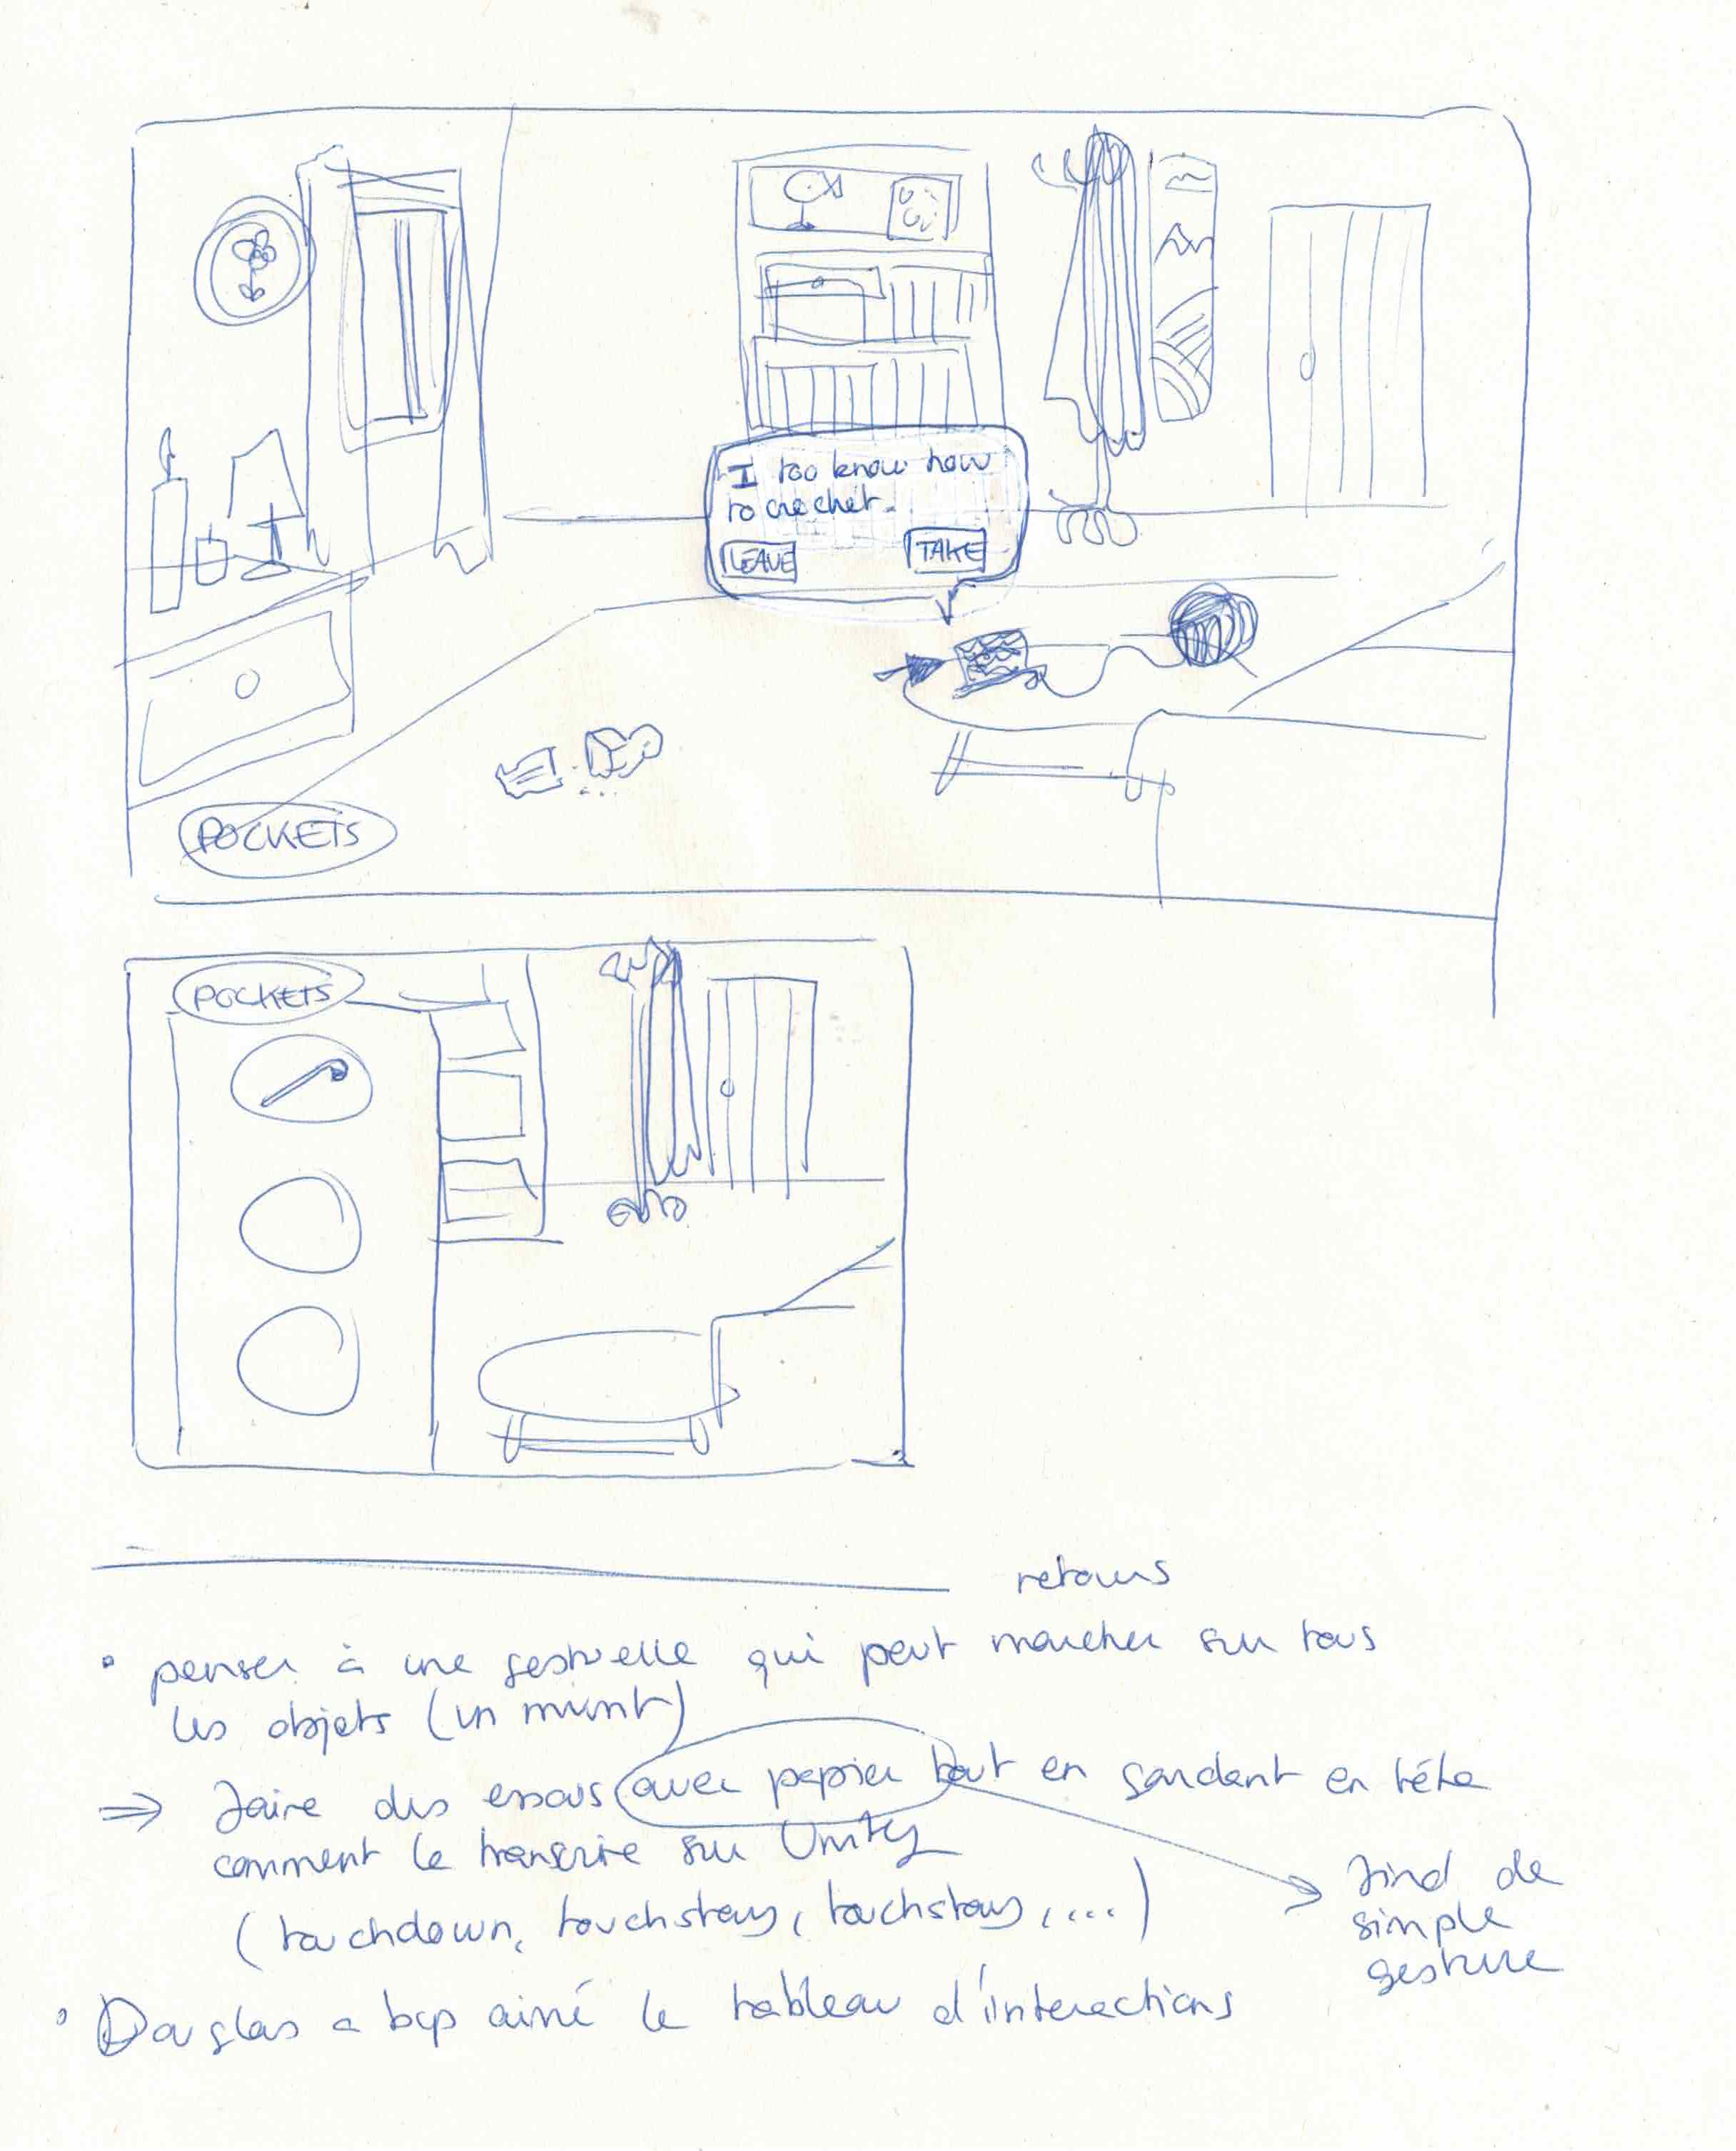 I too know how
to crochet.
LEAVE
TAKE
POCKETS
POCKETS
retours
• penser à une gestuelle qui peut marcher sur tous
les objets (un mvmt)
⇒ faire des essais avec papier tout en gardant en tête
comment le transcrire sur Unity
(touchdown, touchstay, touchstay, ....)
find de
simple
gesture
• Douglas a bcp aimé le tableau d'interactions